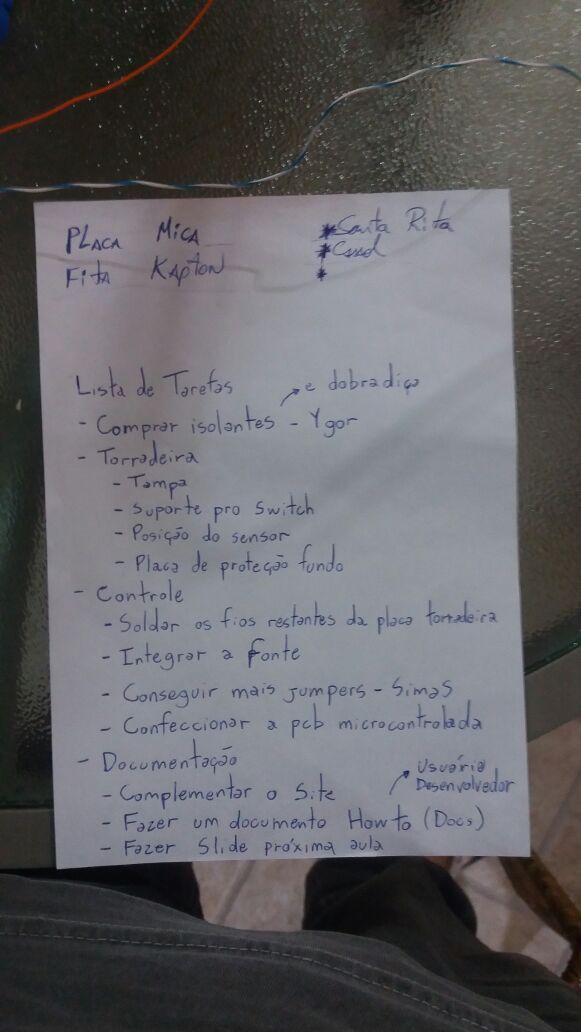 PLACA MICA
FITA KAPTON
* Santa Rita
*
*
Lista de Tarefas
- Comprar isolantes - Ygor
e dobradiça
- Torradeira
- Tampa
- Suporte pro Switch
- Posição do sensor
- Placa de proteção fundo
- Controle
- Soldar os fios restantes da placa torradeira
- Integrar a fonte
- Conseguir mais jumpers - Simas
- Confeccionar a pcb microcontrolada
- Documentação
- Complementar o Site
- Fazer um documento How to (Docs)
Usuário
Desenvolvedor
- Fazer Slide próxima aula